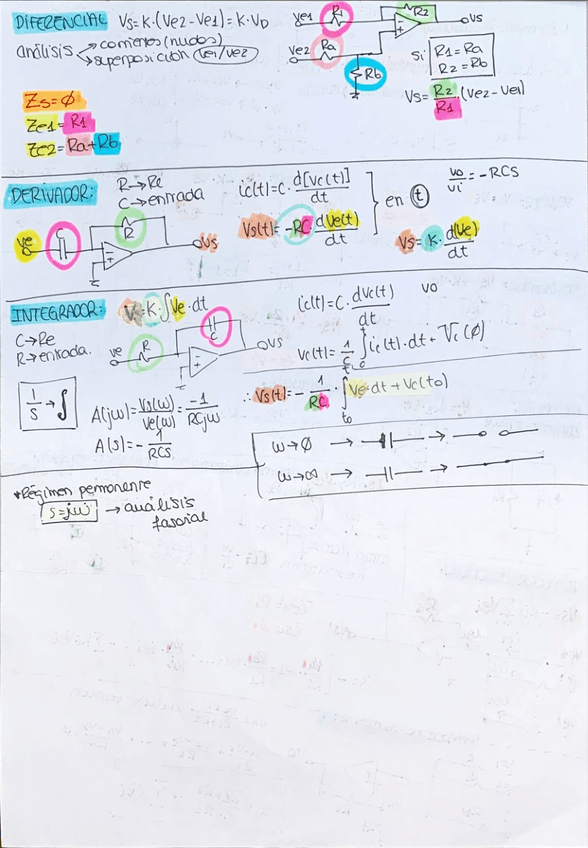 DIFERENCIAL Vs=K·(Ve2-Ve1)=K·VD
análisis → corrientes (nudos)
→ superposición (ve1/ve2)
Ve1 R1 R2 Vs
Ve2 Ra
Rb
si: R1=Ra
R2=Rb
Vs=R2/R1·(Ve2-Ve1)
Zs=Ø
Ze1=R1
Ze2=Ra+Rb
DERIVADOR: R→Re
C→entrada
ve C R Vs
ic(t)=C·d[Vc(t)]/dt
Vs(t)=-RC·dVe(t)/dt
en t
vo/vi=-RCS
Vs=K·d(Ve)/dt
INTEGRADOR: Vs=K·∫Ve·dt
C→Re
R→entrada.
ve R C Vs
ic(t)=C·dVc(t)/dt
vo
Vc(t)=1/C ∫ ic(t)·dt+Vc(Ø)
∴Vs(t)=-1/RC·∫t0 Ve·dt+Vc(to)
1/S→∫
A(jω)=Vs(ω)/Ve(ω)=-1/RCjω
A(s)=-1/RCS
ω→Ø → →
ω→∞ → →
*Régimen permanente
s=jω → análisis
fasorial